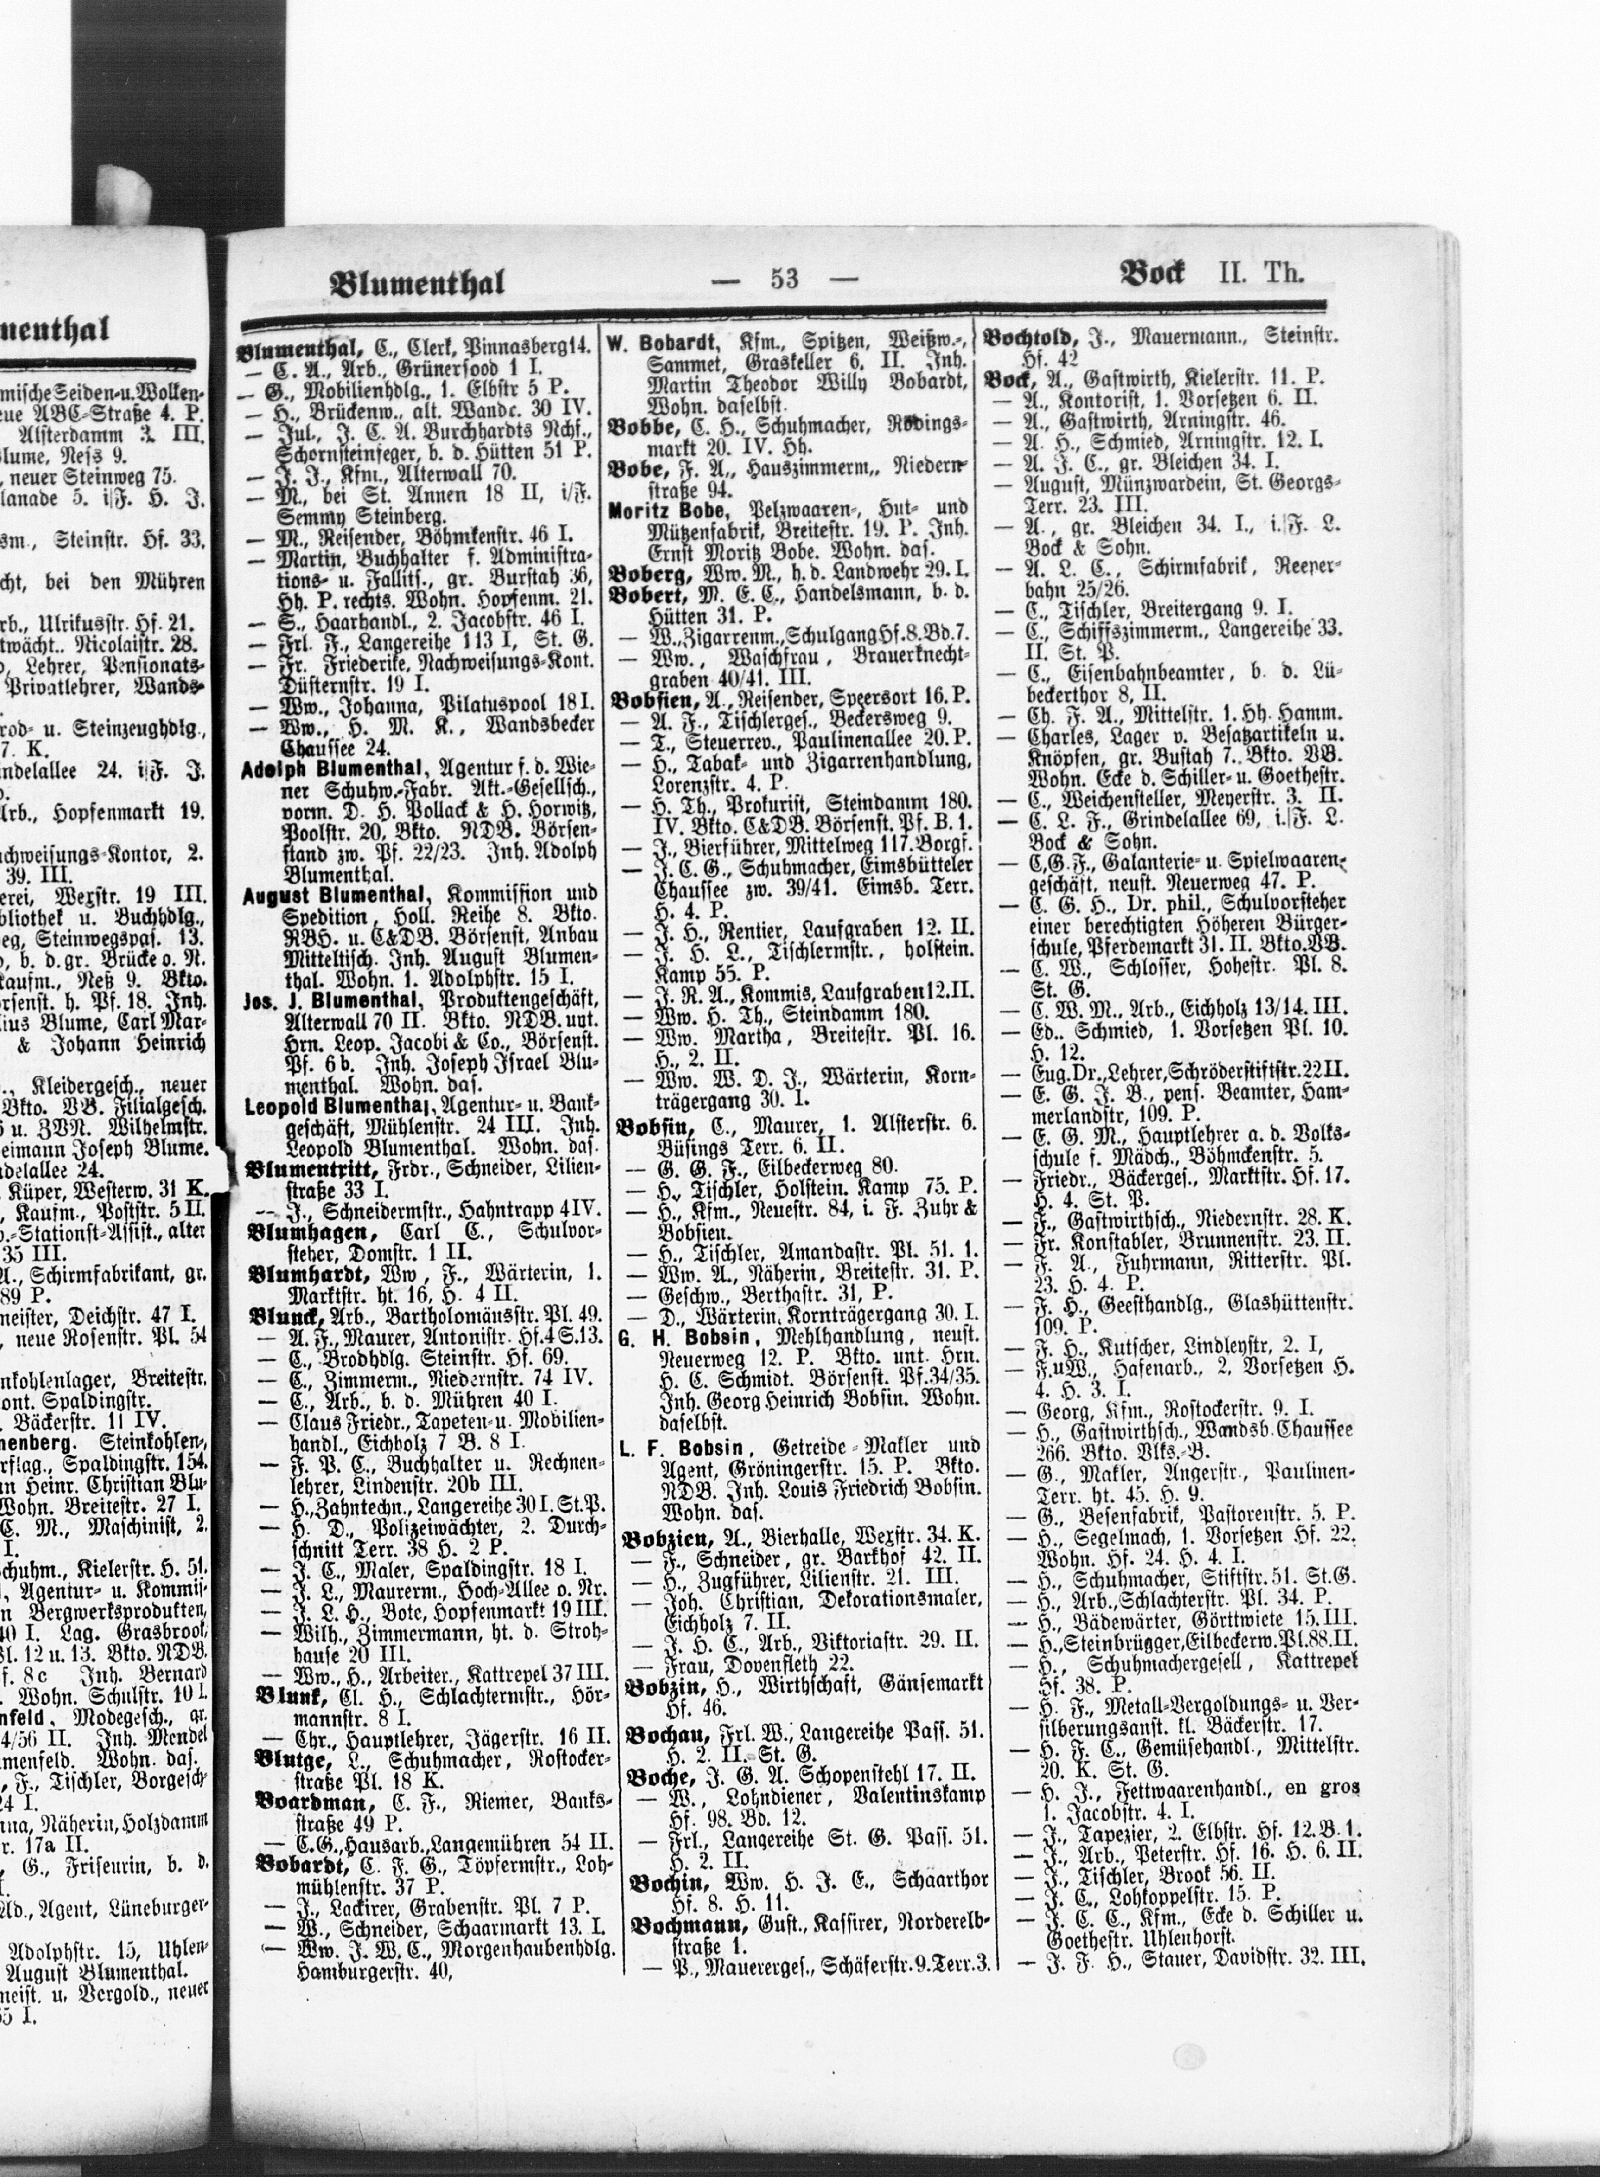 menthal
mische Seiden-u. Wollen-
eue ABC-Straße 4. P.
Alsterdamm 3. III.
lume, Neß 9.
, neuer Steinweg 75.
lanade 5. i/F. H. J.
sm., Steinstr. Hf. 33.
cht, bei den Mühren
rb., Ulrikusstr. Hf. 21.
twächt.. Nicolaistr. 28.
, Lehrer, Pensionats-
Privatlehrer, Wands-
rod- u. Steinzeughdlg.,
7. K.
indelallee 24. i/F. J.
Arb., Hopfenmarkt 19.
achweisungs-Kontor, 2.
39. III.
erei, Wexstr. 19 III.
bliothek u. Buchhdlg.,
eg, Steinwegspas. 13.
, b. d. gr. Brücke o. N.
kaufm., Neß 9. Bkto.
örsenst. h. Pf. 18. Inh.
lius Blume, Carl Mar-
& Johann Heinrich
., Kleidergesch., neuer
Bkto. VB. Filialgesch.
u. ZVN. Wilhelmstr.
eimann Joseph Blume.
ndelallee 24.
, Küper, Westerw. 31 K.
, Kaufm., Poststr. 5 II.
.-Stationst-Assist., alter
35 III.
A., Schirmfabrikant, gr.
89 P.
meister, Deichstr. 47 I.
, neue Rosenstr. Pl. 54
nkohlenlager, Breitestr.
ont. Spaldingstr.
. Bäckerstr. 11 IV.
nenberg. Steinkohlen-,
rflag., Spaldingstr. 154.
n Heinr. Christian Blu-
Wohn. Breitestr. 27 I.
C. M., Maschinist, 2.
I.
chuhm., Kielerstr. H. 51.
, Agentur- u. Kommis-
n Bergwerksprodukten,
40 I. Lag. Grasbrook,
Pl. 12 u. 13. Bkto. NDB.
f. 8c Inh. Bernard
. Wohn. Schulstr. 10 I.
nfeld, Modegesch., gr.
4/56 II. Inh. Mendel
menfeld. Wohn. das.
, F., Tischler, Borgesch-
24 I.
nna, Näherin, Holzdamm
r. 17a II.
, G., Friseurin, b. d.
Ad., Agent, Lüneburger-
Adolphstr. 15, Uhlen-
August Blumenthal.
meist. u. Vergold., neuer
55 I.
Blumenthal — 53 — Bock II. Th.
Blumenthal, C., Clerk, Pinnasberg 14.
— C. A., Arb., Grünersood 1 I.
— G., Mobilienhdlg., 1. Elbstr 5 P.
— H., Brückenw., alt. Wandr. 30 IV.
— Jul., J. C. A. Burchhardts Nchf.,
Schornsteinfeger, b. d. Hütten 51 P.
— J. J., Kfm., Alterwall 70.
— M., bei St. Annen 18 II, i/F.
Semmy Steinberg.
— M., Reisender, Böhmkenstr. 46 I.
— Martin, Buchhalter f. Administra-
tions- u. Fallits., gr. Burstah 36,
Hh. P. rechts. Wohn. Hopfenm. 21.
— S., Haarhandl., 2. Jacobstr. 46 I.
— Frl. F., Langereihe 113 I, St. G.
— Fr. Friederike, Nachweisungs-Kont.
Düsternstr. 19 I.
— Ww., Johanna, Pilatuspool 18 I.
— Ww., H. M. K., Wandsbecker
Chaussee 24.
Adolph Blumenthal, Agentur f. d. Wie-
ner Schuhw.-Fabr. Akt.-Gesellsch.,
vorm. D. H. Pollack & H. Horwitz,
Poolstr. 20, Bkto. NDB. Börsen-
stand zw. Pf. 22/23. Inh. Adolph
Blumenthal.
August Blumenthal, Kommission und
Spedition, Holl. Reihe 8. Bkto.
RBH. u. C&DB. Börsenst, Anbau
Mitteltisch. Inh. August Blumen-
thal. Wohn. 1. Adolphstr. 15 I.
Jos. J. Blumenthal, Produktengeschäft,
Alterwall 70 II. Bkto. NDB. unt.
Hrn. Leop. Jacobi & Co., Börsenst.
Pf. 6 b. Inh. Joseph Israel Blu-
menthal. Wohn. das.
Leopold Blumenthal, Agentur- u. Bank-
geschäft, Mühlenstr. 24 III. Inh.
Leopold Blumenthal. Wohn. das.
Blumentritt, Frdr., Schneider, Lilien-
straße 33 I.
— J., Schneidermstr., Hahntrapp 4 IV.
Blumhagen, Carl C., Schulvor-
steher, Domstr. 1 II.
Blumhardt, Ww, F., Wärterin, 1.
Marktstr. ht. 16, H. 4 II.
Blunck, Arb., Bartholomäusstr. Pl. 49.
— A. F., Maurer, Antonistr. Hf. 4 S. 13.
— C., Brodhdlg. Steinstr. Hf. 69.
— C., Zimmerm., Niedernstr. 74 IV.
— C., Arb., b. d. Mühren 40 I.
— Claus Friedr., Tapeten- u. Mobilien-
handl., Eichholz 7 B. 8 I.
— F. P. C., Buchhalter u. Rechnen-
lehrer, Lindenstr. 20b III.
— H., Zahntechn., Langereihe 30 I. St. P.
— H. D., Polizeiwächter, 2. Durch-
schnitt Terr. 38 H. 2 P.
— J. C., Maler, Spaldingstr. 18 I.
— J. L., Maurerm., Hoch-Allee o. Nr.
— J. L. H., Bote, Hopfenmarkt 19 III.
— Wilh., Zimmermann, ht. d. Stroh-
hause 20 III.
— Ww., H., Arbeiter., Kattrepel 37 III.
Blunk, Cl. H., Schlachtermstr., Hör-
mannstr. 8 I.
— Chr., Hauptlehrer, Jägerstr. 16 II.
Blutge, L., Schuhmacher, Rostocker-
straße Pl. 18 K.
Boardman, C. F., Riemer, Banks-
straße 49 P.
— C. G., Hausarb., Langemühren 54 II.
Bobardt, C. F. G., Töpfermstr., Loh-
mühlenstr. 37 P.
— J., Lackirer, Grabenstr. Pl. 7 P.
— W., Schneider, Schaarmarkt 13. I.
— Ww. J. W. C., Morgenhaubenhdlg.
Hamburgerstr. 40,
W. Bobardt, Kfm., Spitzen, Weißw.-,
Sammet, Graskeller 6. II. Inh.
Martin Theodor Willy Bobardt,
Wohn. daselbst.
Bobbe, C. H., Schuhmacher, Rödings-
markt 20. IV. Hh.
Bobe, F. A., Hauszimmerm,, Niedern-
straße 94.
Moritz Bobe, Pelzwaaren-, Hut- und
Mützenfabrik, Breitestr. 19. P. Inh.
Ernst Moritz Bobe. Wohn. das.
Boberg, Ww. M., h. d. Landwehr 29. I.
Bobert, M. E. C., Handelsmann, b. d.
Hütten 31. P.
— W., Zigarrenm., Schulgang Hf. 8. Bd. 7.
— Ww., Waschfrau, Brauerknecht-
graben 40/41. III.
Bobsien, A., Reisender, Speersort 16. P.
— A. F., Tischlerges., Beckersweg 9.
— T., Steuerrev., Paulinenallee 20. P.
— H., Tabak- und Zigarrenhandlung,
Lorenzstr. 4. P.
— H. Th., Prokurist, Steindamm 180.
IV. Bkto. C&DB. Börsenst. Pf. B. 1.
— J., Bierführer, Mittelweg 117. Borgf.
— J. C. G., Schuhmacher, Eimsbütteler
Chaussee zw. 39/41. Eimsb. Terr.
H. 4. P.
— J. H., Rentier, Laufgraben 12. II.
— J. H. L., Tischlermstr., holstein.
Kamp 55. P.
— J. R. A., Kommis, Laufgraben 12. II.
— Ww. H. Th., Steindamm 180.
— Ww. Martha, Breitestr. Pl. 16.
H., 2. II.
— Ww. W. D. J., Wärterin, Korn-
trägergang 30. I.
Bobsin, C., Maurer, 1. Alsterstr. 6.
Büsings Terr. 6. II.
— G. G. F., Eilbeckerweg 80.
— H., Tischler, Holstein. Kamp 75. P.
— H., Kfm., Neuestr. 84, i. F. Zuhr &
Bobsien.
— H., Tischler, Amandastr. Pl. 51. 1.
— Ww. A., Näherin, Breitestr. 31. P.
— Geschw., Berthastr. 31, P.
— D., Wärterin, Kornträgergang 30. I.
G. H. Bobsin, Mehlhandlung, neust.
Neuerweg 12. P. Bkto. unt. Hrn.
H. C. Schmidt. Börsenst. Pf. 34/35.
Inh. Georg Heinrich Bobsin. Wohn.
daselbst.
L. F. Bobsin, Getreide-Makler und
Agent, Gröningerstr. 15. P. Bkto.
NDB. Inh. Louis Friedrich Bobsin.
Wohn. das.
Bobzien, A., Bierhalle, Wexstr. 34. K.
— F., Schneider, gr. Barkhof 42. II.
— H., Zugführer, Lilienstr. 21. III.
— Joh. Christian, Dekorationsmaler,
Eichholz 7. II.
— J. H. C., Arb., Viktoriastr. 29. II.
— Frau, Dovenfleth 22.
Bobzin, H., Wirthschaft, Gänsemarkt
Hf. 46.
Bochau, Frl. W., Langereihe Pass. 51.
H. 2. II. St. G.
Boche, J. G. A. Schopenstehl 17. II.
— W., Lohndiener, Valentinskamp
Hf. 98. Bd. 12.
— Frl., Langereihe St. G. Pass. 51.
H. 2. II.
Bochin, Ww. H. J. E., Schaarthor
Hf. 8. H. 11.
Bochmann, Gust., Kassirer, Norderelb-
straße 1.
— P., Mauererges., Schäferstr. 9. Terr. 3.
Bochtold, J., Mauermann., Steinstr.
Hf. 42
Bock, A., Gastwirth, Kielerstr. 11. P.
— A., Kontorist, 1. Vorsetzen 6. II.
— A., Gastwirth, Arningstr. 46.
— A. H., Schmied, Arningstr. 12. I.
— A. J. C., gr. Bleichen 34. I.
— August, Münzwardein, St. Georgs-
Terr. 23. III.
— A., gr. Bleichen 34. I., i./F. L.
Bock & Sohn.
— A. L. C., Schirmfabrik, Reeper-
bahn 25/26.
— C., Tischler, Breitergang 9. I.
— C., Schiffszimmerm., Langereihe 33.
II. St. P.
— C., Eisenbahnbeamter, b. d. Lü-
beckerthor 8, II.
— Ch. F. A., Mittelstr. 1. Hh. Hamm.
— Charles, Lager v. Besatzartikeln u.
Knöpfen, gr. Bustah 7. Bkto. VB.
Wohn. Ecke d. Schiller- u. Goethestr.
— C., Weichensteller, Meyerstr. 3. II.
— C. L. F., Grindelallee 69, i./F. L.
Bock & Sohn.
— C. G. F., Galanterie- u. Spielwaaren-
geschäft, neust. Neuerweg 47. P.
— C. G. H., Dr. phil., Schulvorsteher
einer berechtigten Höheren Bürger-
schule, Pferdemarkt 31. II. Bkto. VB.
— C. W., Schlosser, Hohestr. Pl. 8.
St. G.
— C. W. M., Arb., Eichholz 13/14. III.
— Ed.. Schmied, 1. Vorsetzen Pl. 10.
H. 12.
— Eug. Dr., Lehrer, Schröderstiftstr. 22 II.
— E. G. J. B., pens. Beamter, Ham-
merlandstr, 109. P.
— E. G. M., Hauptlehrer a. d. Volks-
schule f. Mädch., Böhmckenstr. 5.
— Friedr., Bäckerges., Marktstr. Hf. 17.
H. 4. St. P.
— F., Gastwirthsch., Niedernstr. 28. K.
— Fr. Konstabler, Brunnenstr. 23. II.
— F. A., Fuhrmann, Ritterstr. Pl.
23. H. 4. P.
— F. H., Geesthandlg., Glashüttenstr.
109. P.
— F. H., Kutscher, Lindleystr, 2. I,
— F. u W., Hafenarb., 2. Vorsetzen H.
4. H. 3. I.
— Georg, Kfm., Rostockerstr. 9. I.
— H., Gastwirthsch., Wandsb. Chaussee
266. Bkto. Vlks.-B.
— G., Makler, Angerstr., Paulinen-
Terr. ht. 45. H. 9.
— G., Besenfabrik, Pastorenstr. 5. P.
— H., Segelmach, 1. Vorsetzen Hf. 22.
Wohn. Hf. 24. H. 4. I.
— H., Schuhmacher, Stiftstr. 51. St. G.
— H., Arb., Schlachterstr. Pl. 34. P.
— H., Bädewärter, Görttwiete 15. III.
— H., Steinbrügger, Eilbeckerw. Pl. 88. II.
— H., Schuhmachergesell, Kattrepel
Hf. 38. P.
— H. F., Metall-Vergoldungs- u. Ver-
silberungsanst. kl. Bäckerstr. 17.
— H. F. C., Gemüsehandl., Mittelstr.
20. K. St. G.
— H. J., Fettwaarenhandl., en gros
1. Jacobstr. 4. I.
— J., Tapezier, 2. Elbstr. Hf. 12. B. 1.
— J., Arb., Peterstr. Hf. 16. H. 6. II.
— J., Tischler, Brook 56. II.
— J. C., Lohkoppelstr. 15. P.
— J. C. C., Kfm., Ecke d. Schiller u.
Goethestr. Uhlenhorst.
— J. F. H., Stauer, Davidstr. 32. III.